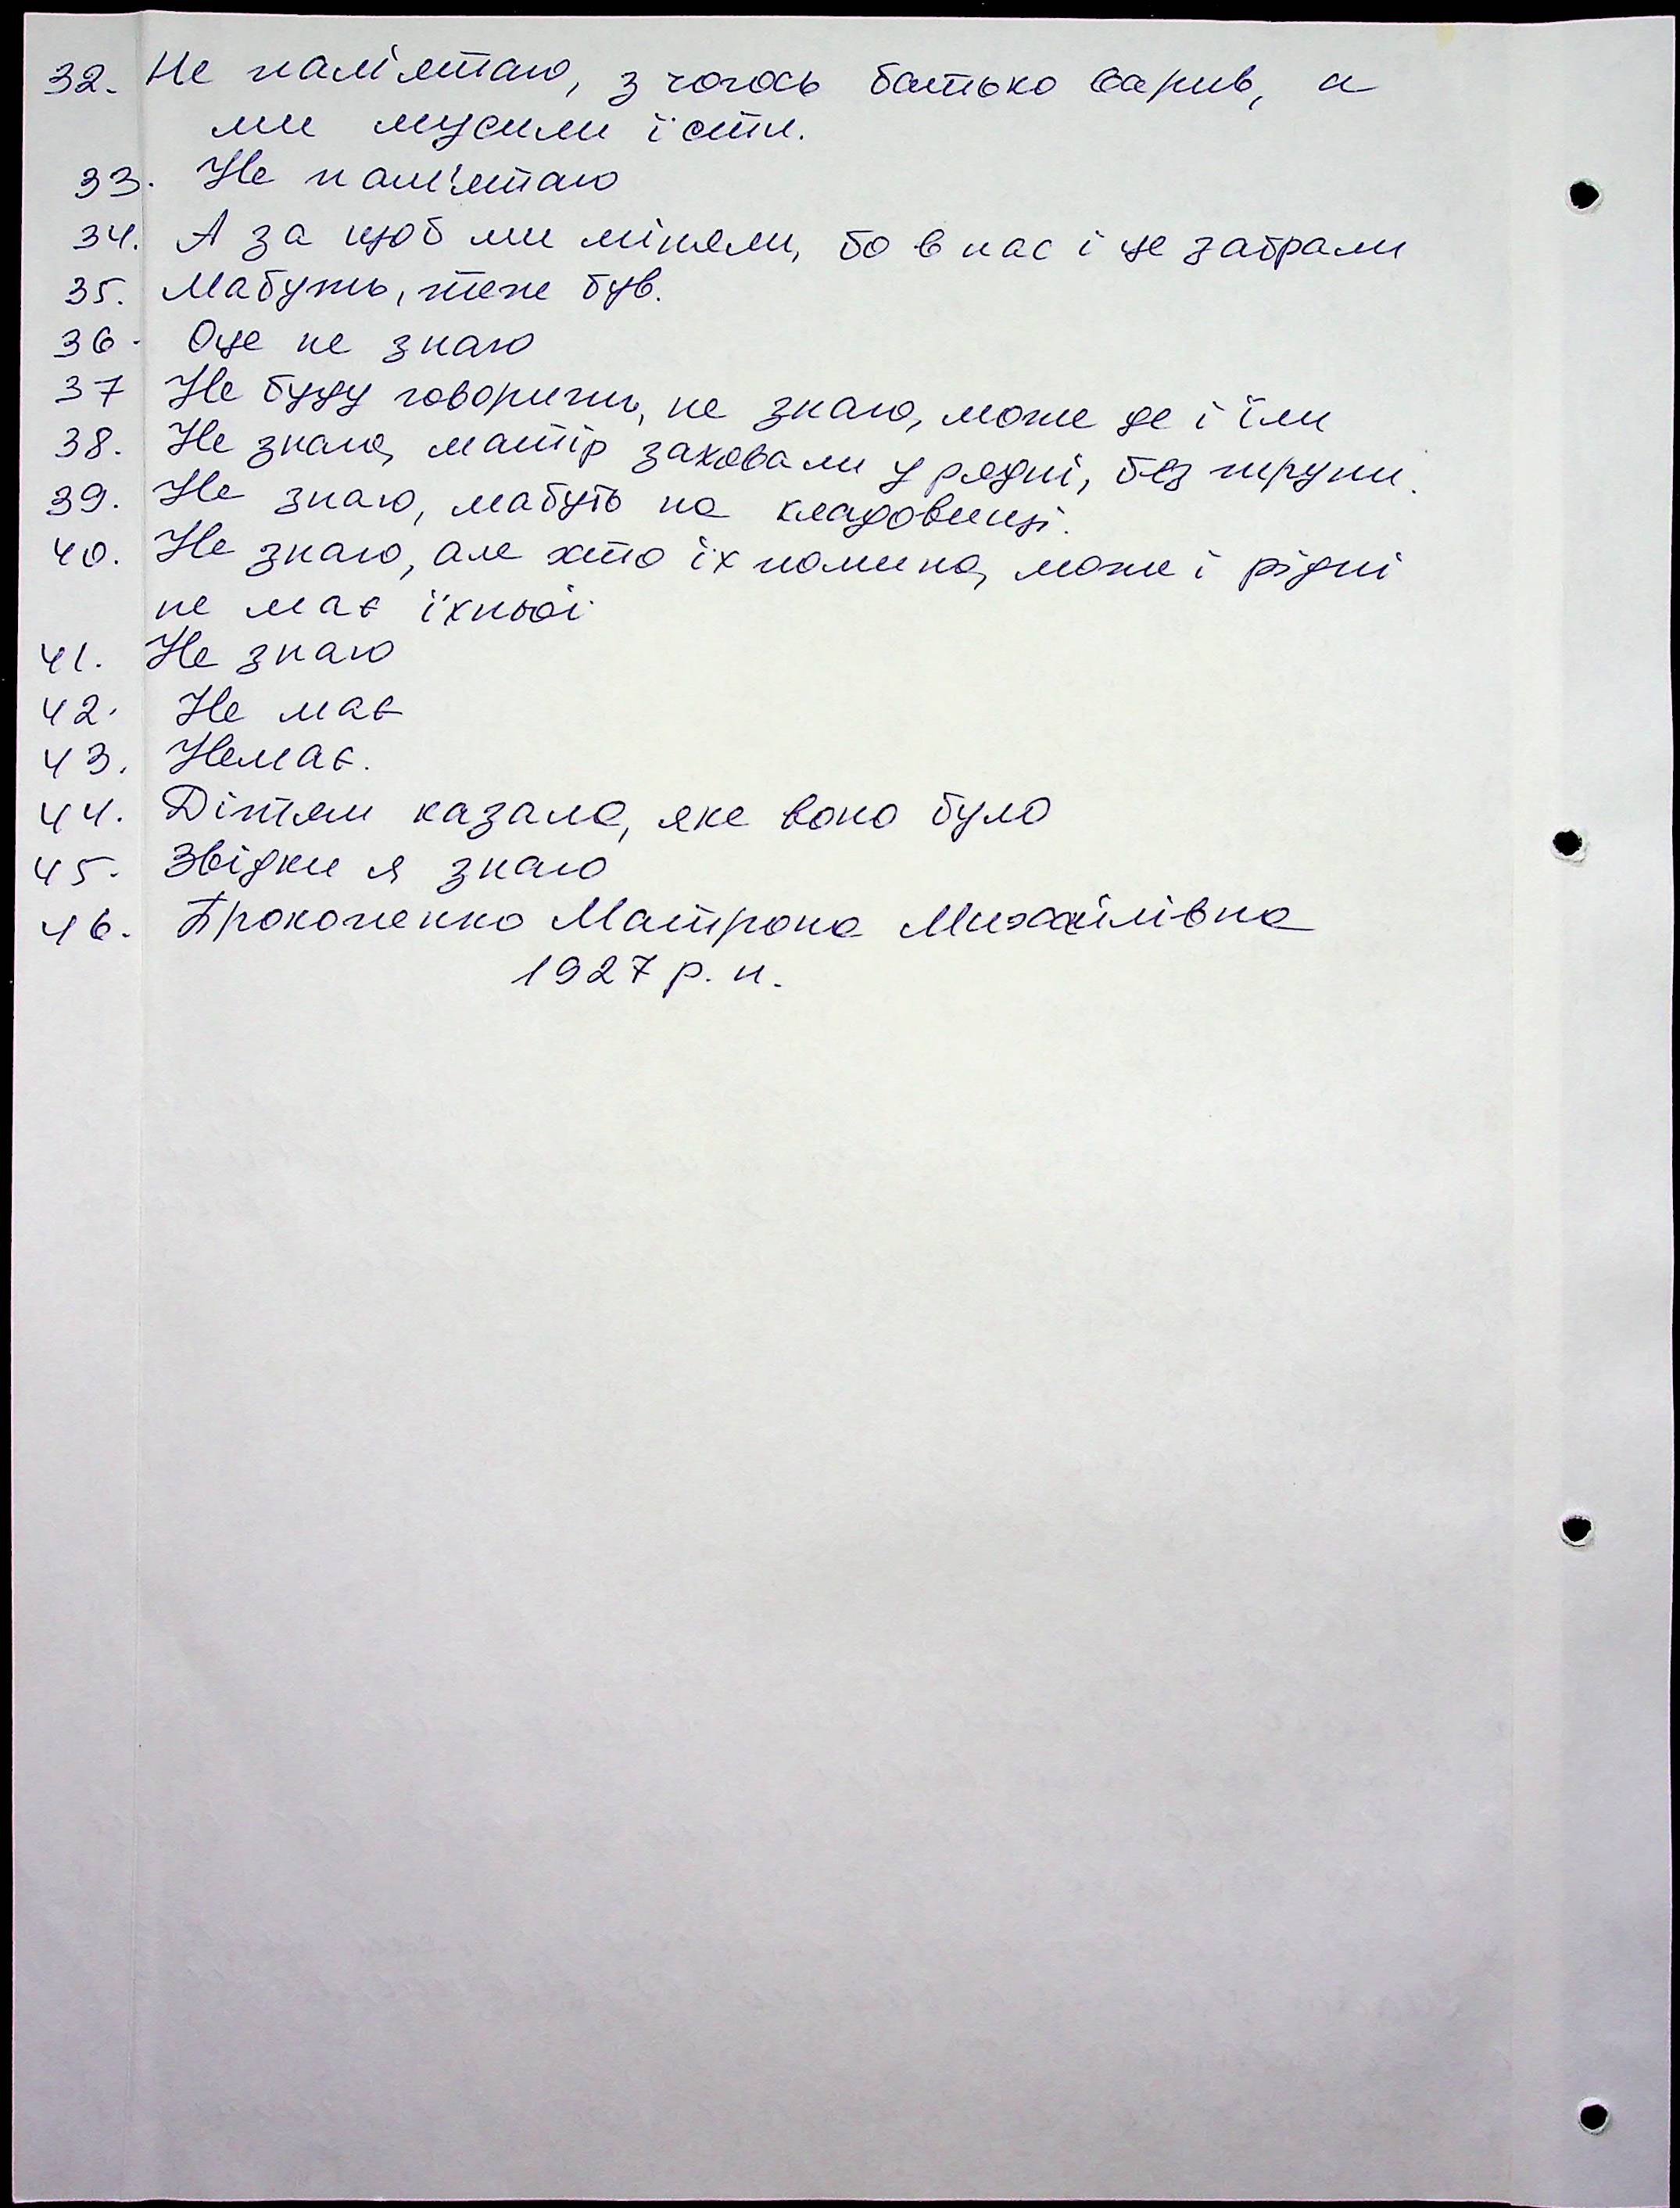 32. Не пам'ятаю, з чогось батько варив, а
ми мусили їсти.
33. Не пам'ятаю
34. А за щоб ми міняли, бо в нас і це забрали
35. Мабуть, теж був.
36. Оце не знаю
37 Не буду говорить, не знаю, може де і їли
38. Не знаю, матір заховали у рядні, без труни.
39. Не знаю, мабуть на кладовищі.
40. Не знаю, але хто їх помина, може і рідні
не має їхньої
41. Не знаю
42. Не має
43. Немає.
44. Дітям казала, яке воно було
45. Звідки я знаю
46. Матрона Михайлівна
1927 р. н.